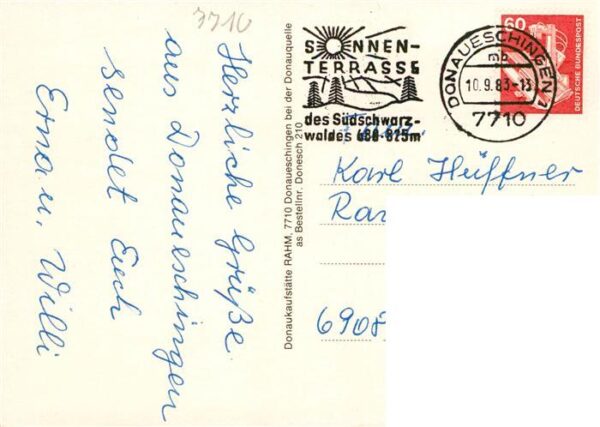 7710
Herzliche Grüße
aus Donaueschingen
sendet Euch
Erna u. Willi
Donaukaufstätte RAHM, 7710 Donaueschingen bei der Donauquelle
as Bestellnr. Donesch 210
SONNEN-
TERRASSE
des Südschwarz-
waldes 680-875m
DONAUESCHINGEN 1
10.9.83-13
7710
60
DEUTSCHE BUNDESPOST
Karl Hüffner
6908